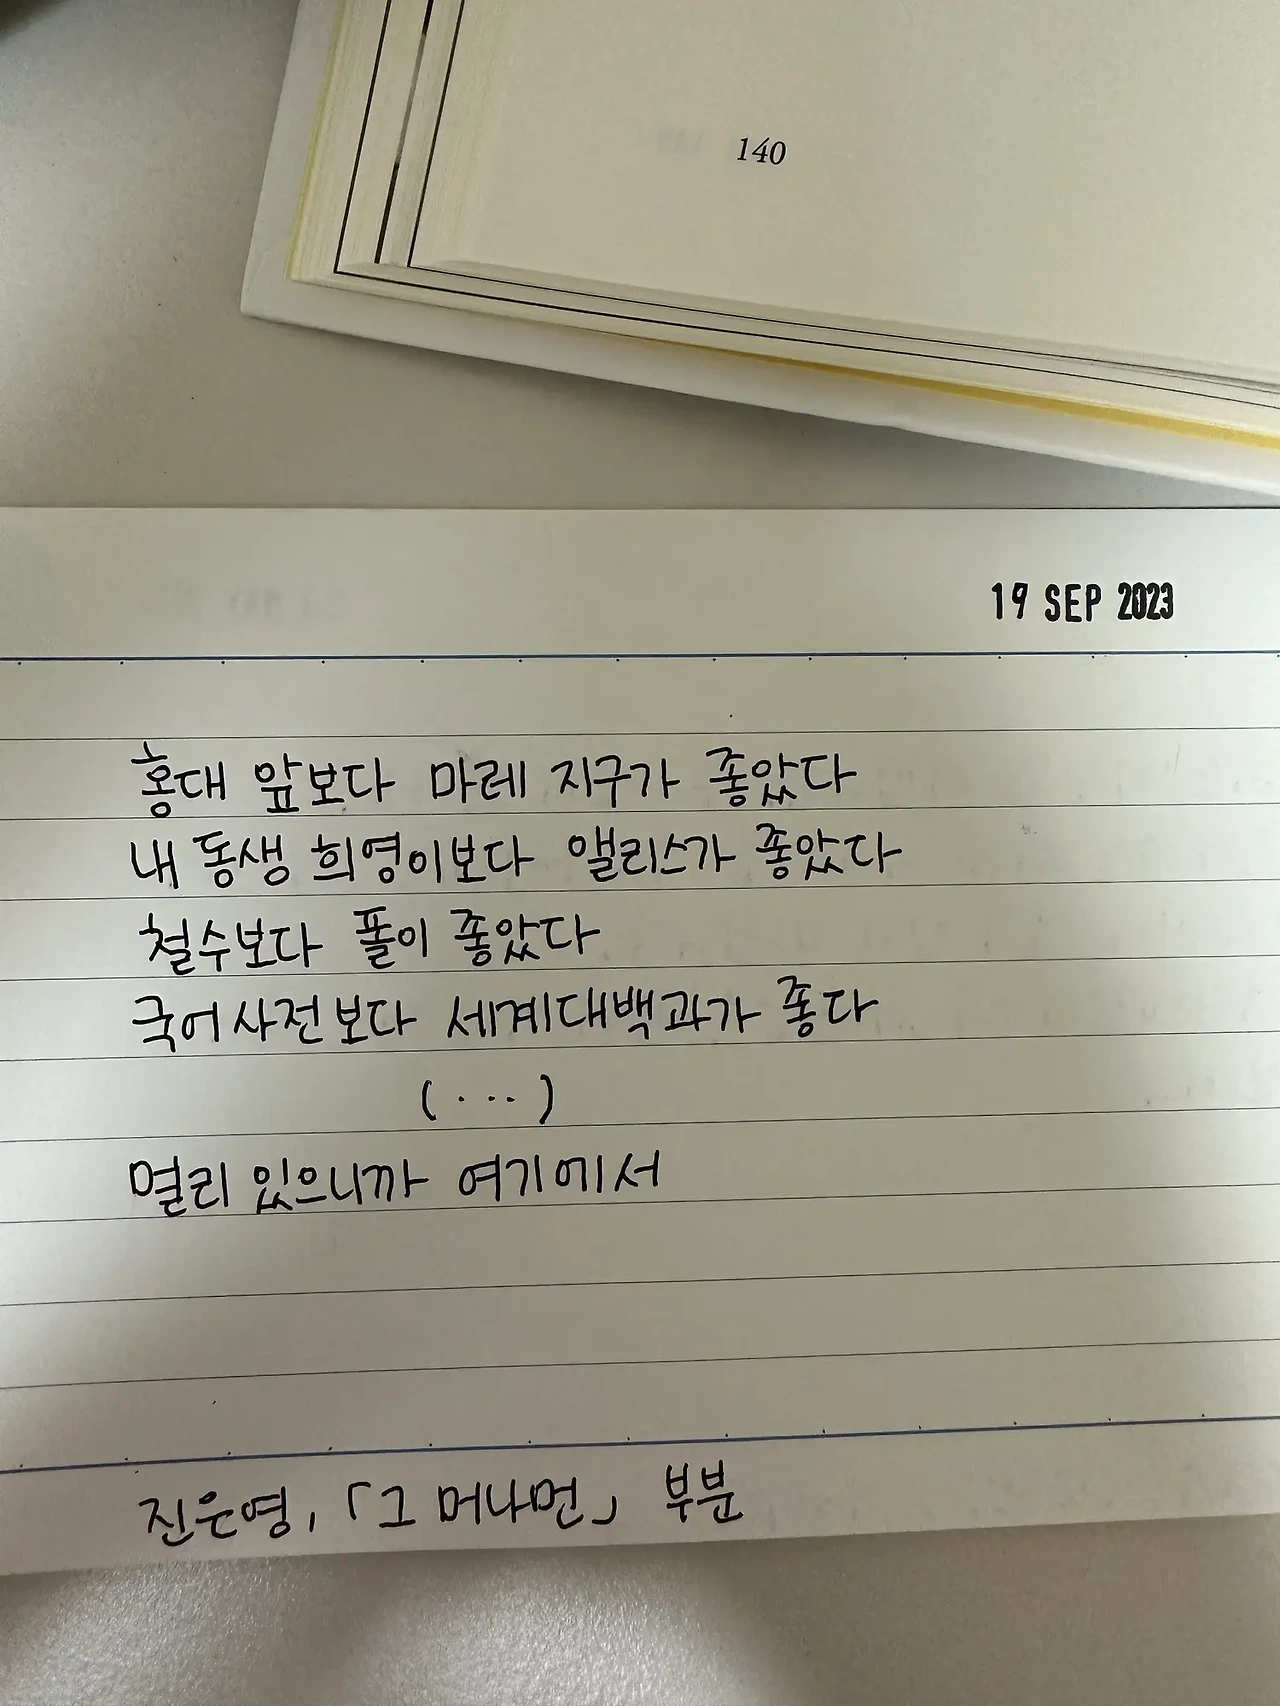 140
19 SEP 2023
홍대 앞보다 마레 지구가 좋았다
내 동생 희영이보다 앨리스가 좋았다
철수보다 폴이 좋았다
국어사전보다 세계대백과가 좋다
(···)
멀리 있으니까 여기에서
진은영, 「그 머나먼」 부분